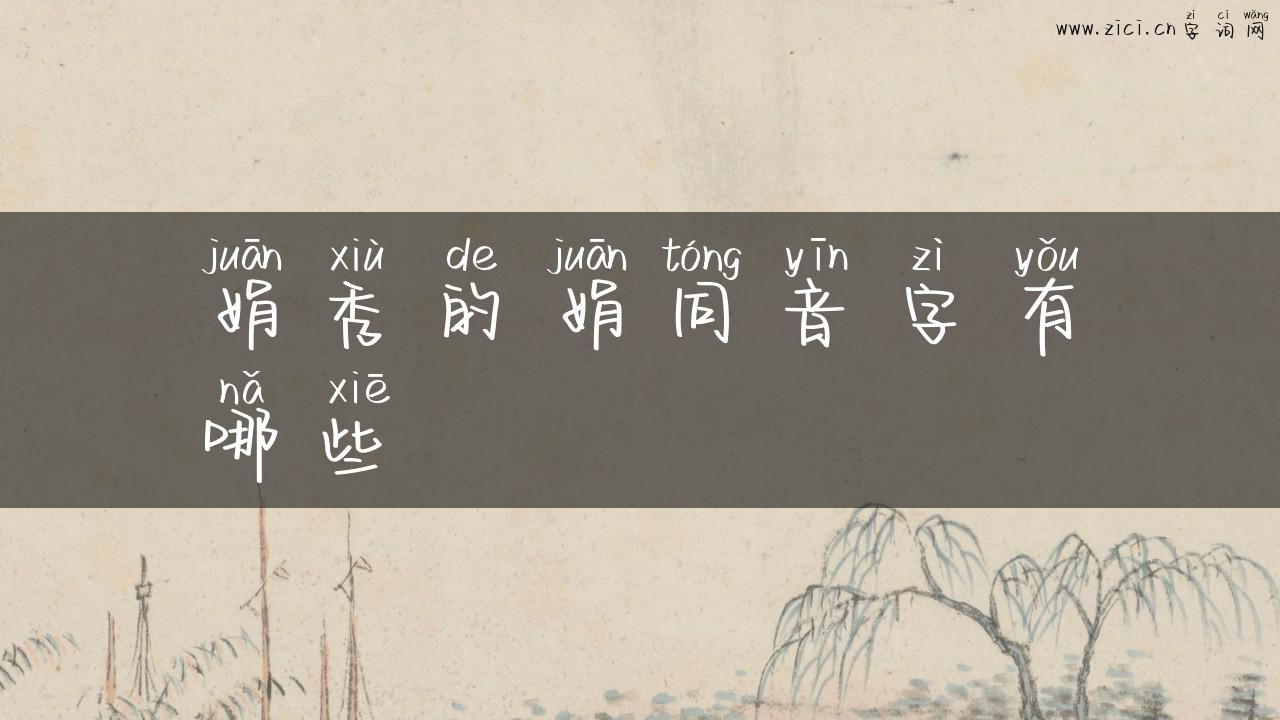 zì cí wǎng
www.zici.cn 字词网
juān xiù de juān tóng yīn zì yǒu
娟秀的娟同音字有
nǎ xiē
哪些